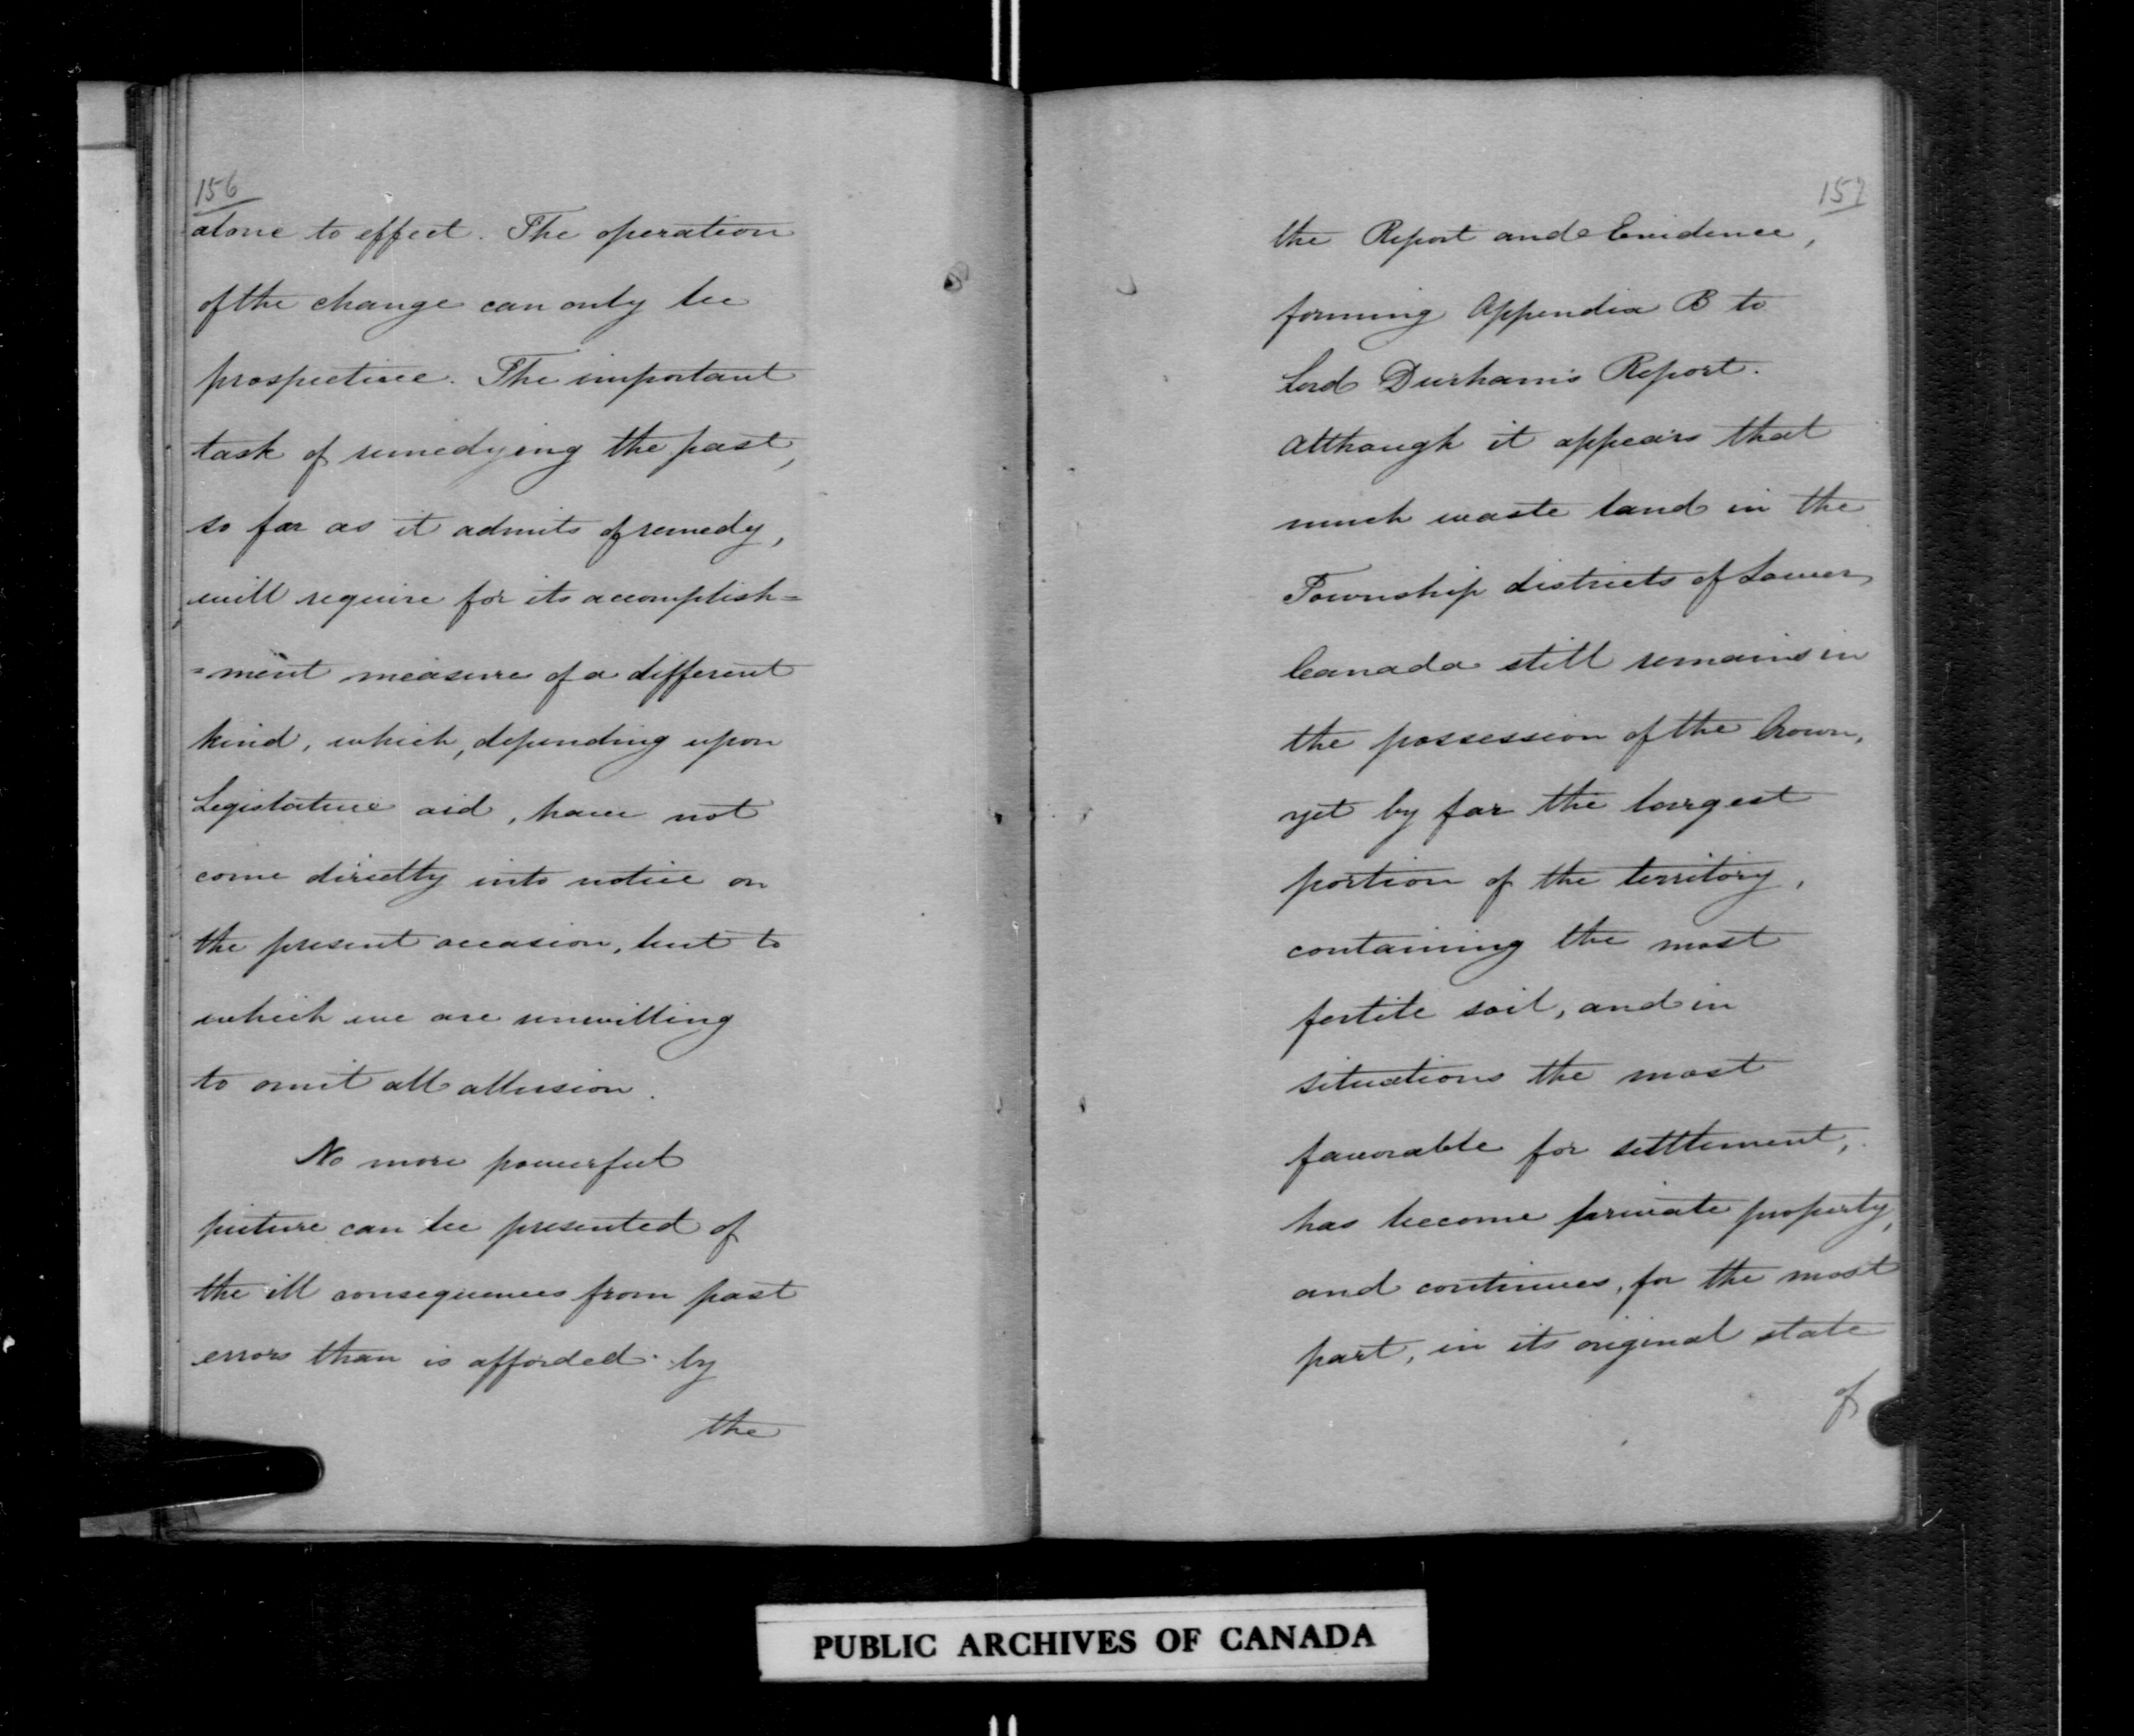 156
alone to effect. The operation
of the change can only be
prospective. The important
task of remedying the past,
so far as it admits of remedy,
will require for its accomplish=
=ment measure of a different
kind, which, depending upon
Legislative aid, have not
come directly into notice on
the present occasion, but to
which we are unwilling
to omit all allusion.
No more powerful
picture can be presented of
the ill consequences from past
errors than is afforded by
the
157
the Report and Evidence,
forming Appendix B to
Lord Durham's Report.
Although it appears that
much waste land in the
Township districts of Lower
Canada still remains in
the possession of the Crown,
yet by far the largest
portion of the territory,
containing the most
fertile soil, and in
situations the most
favorable for settlement,
has become private property,
and continues, for the most
part, in its original state
of
PUBLIC ARCHIVES OF CANADA